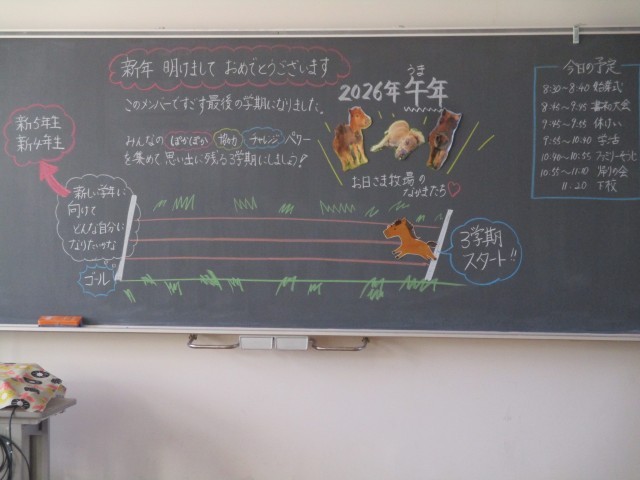 新年 明けまして おめでとうございます
このメンバーですごす最後の学期になりました。
みんなの ぽかぽか 協力 チャレンジ パワー
を集めて 思い出に残る3学期にしましょう!
うま
2026年 午年
お日さま牧場の
なかまたち♡
今日の予定
8:30〜8:40 始業式
8:45〜9:35 書初大会
9:55 休けい
9:55〜10:40 学活
10:40〜10:55
10:55〜11:20 帰りの会
11:20 下校
新5年生
新4年生
新しい学年に
向けて
どんな自分に
なりたいかな
ゴール
3学期
スタート!!